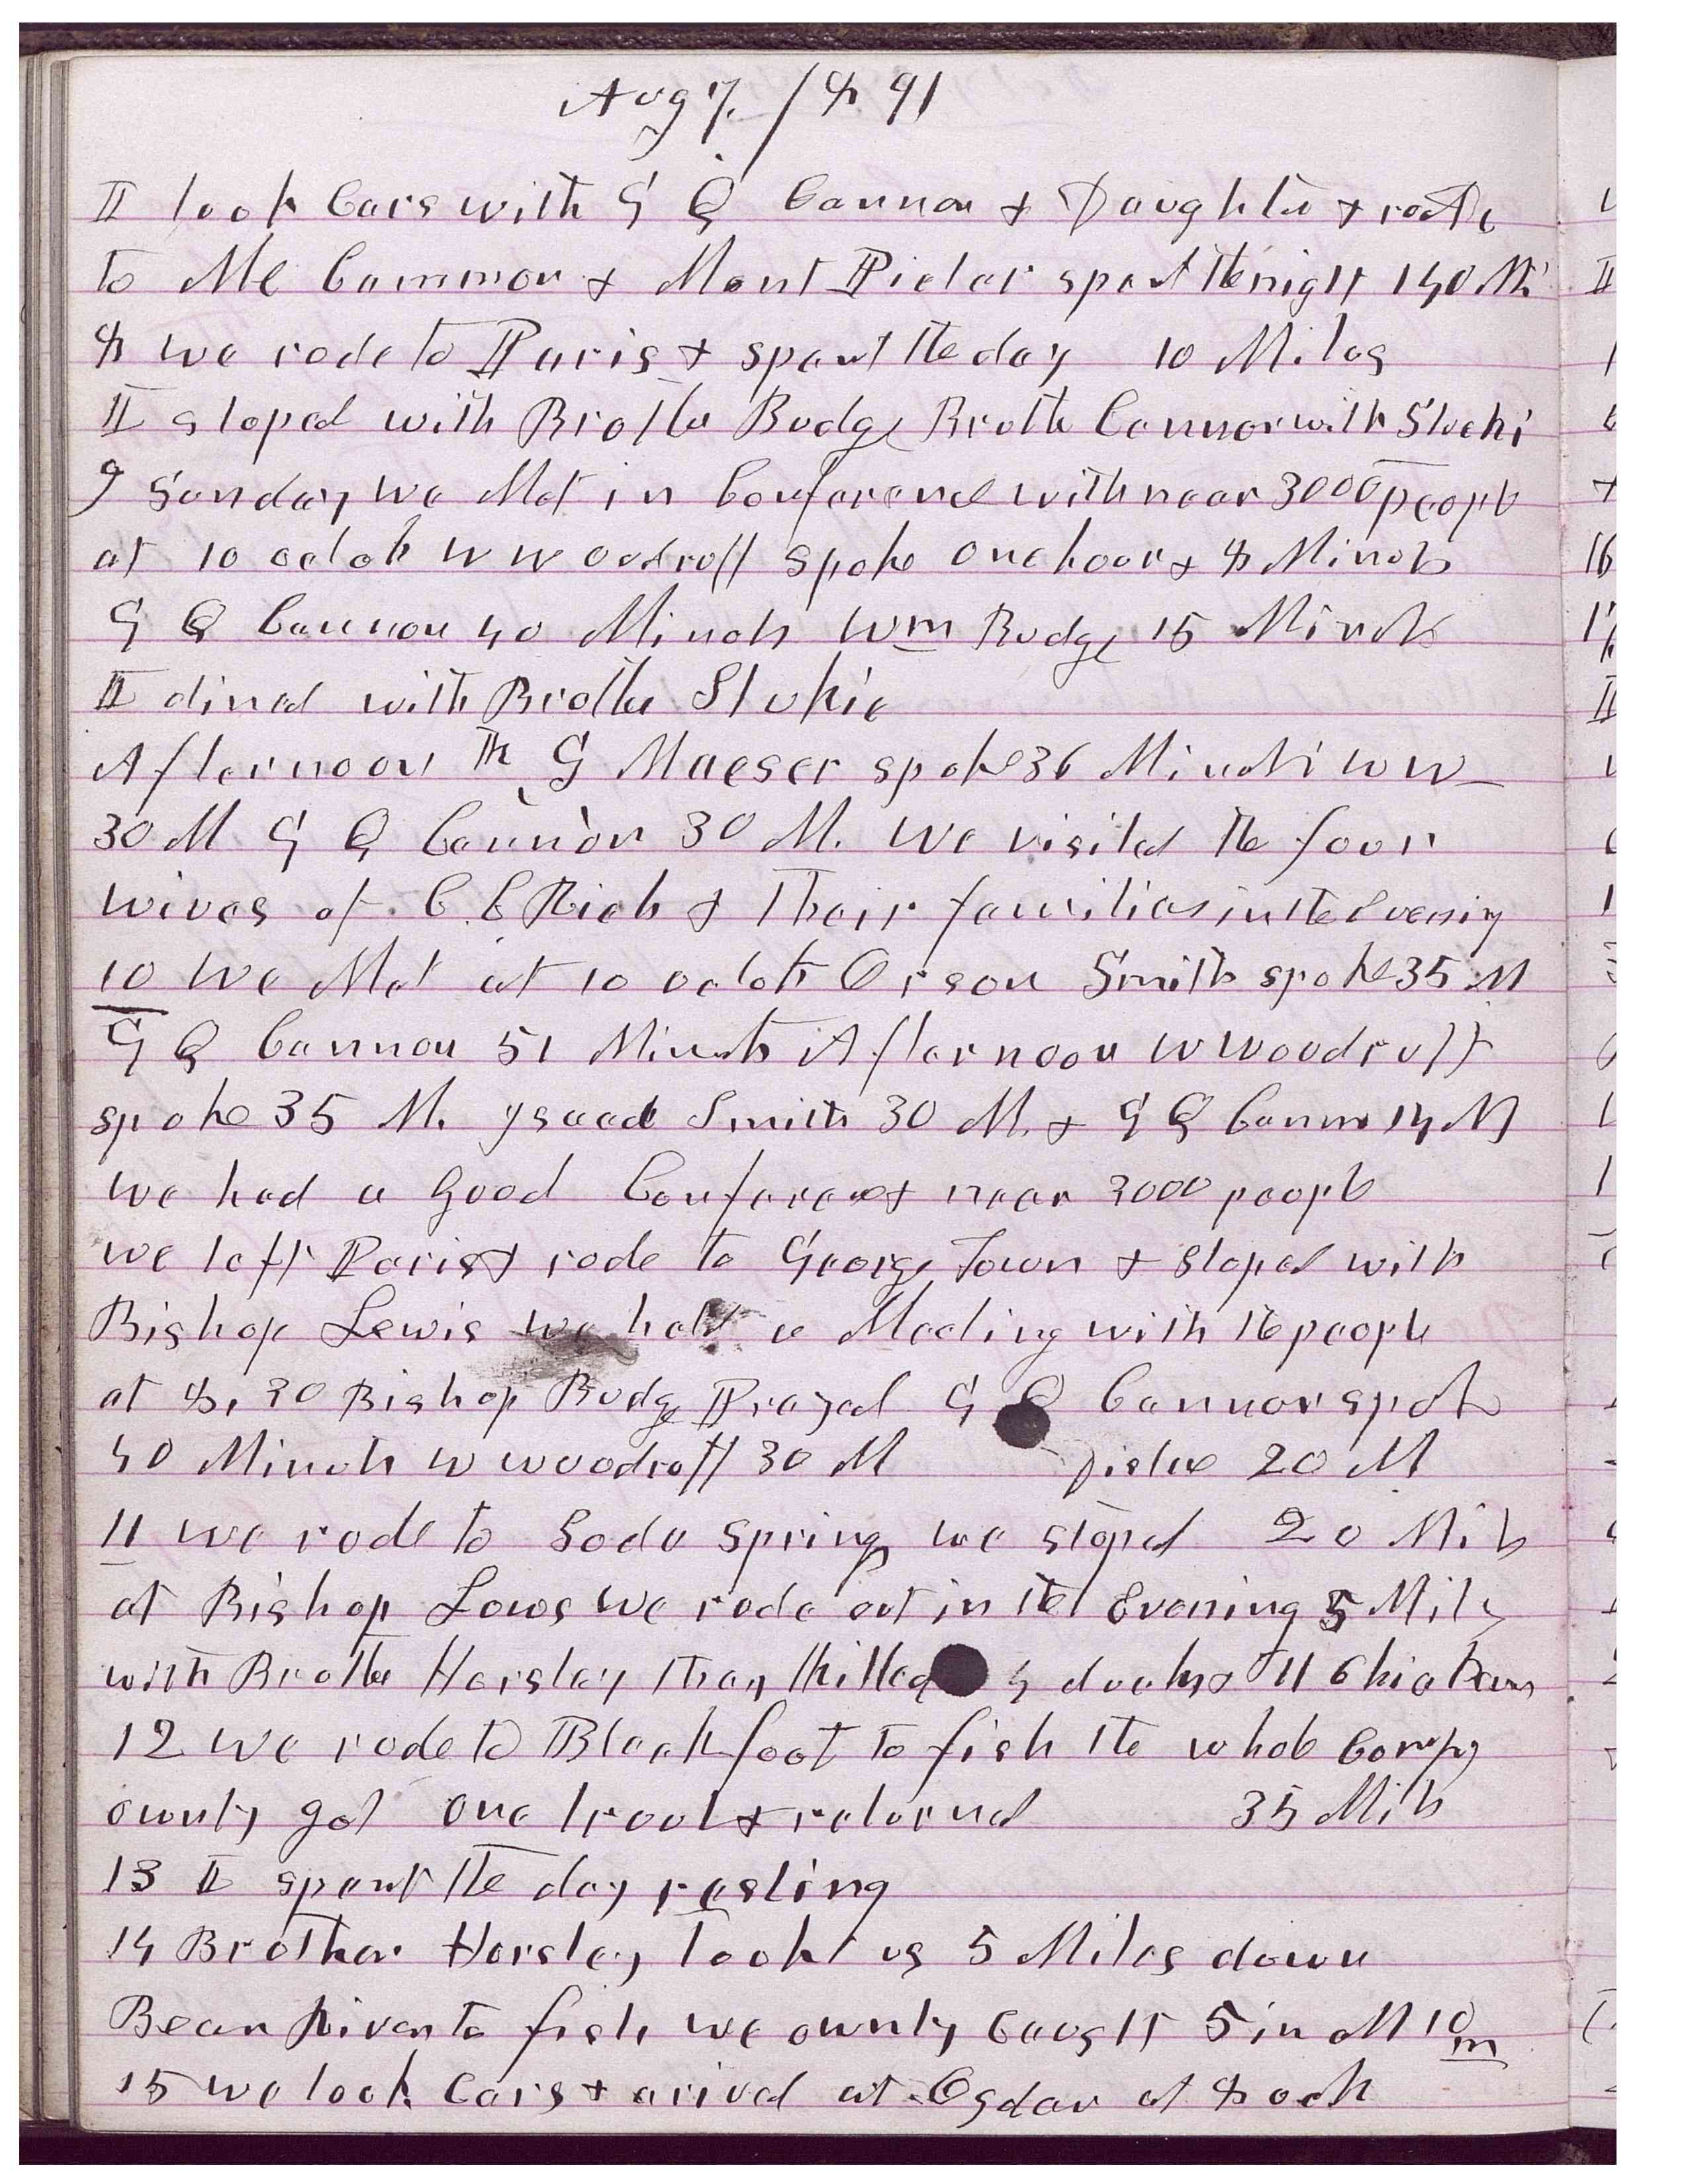 Aug 7. 1891
I took Cars with G Q Cannon & Daughter & rode
to Mc Cammon & Mont Pieler spent the night 140 M
8 we rode to Paris & spent the day 10 Miles
I stoped with Brother Budge Brothe Cannon with Stucki
9 Sunday we Met in Conference with near 3000 people
at 10 oclok W Woodruff spoke one hour & 8 Minuts
G Q Cannon 40 Minuts Wm Budge 15 Minuts
I dined with Brother Stukie
Afternoon K G Maeser spoke 36 Minuts W W
30 M G Q Cannon 30 M. We visited the four
wives of C C Rich & their families in the Evening
10 We Met at 10 oclok Orson Smith spoke 35 M
G Q Cannon 51 Minuts Afternoon W Woodruff
spoke 35 M. Isaac Smith 30 M. & G Q Cannon 14 M
we had a good Conferenc & near 3000 people
we left Paris & rode to George Town & stoped with
Bishop Lewis we held a Meeting with the people
at 8,30 Bishop Budge Prayed G Q Cannon spok
40 Minuts W Woodruff 30 M 20 M
11 we rode to Soda Springs we stoped 20 Mils
at Bishop Lows we rode out in the Evening 5 Miles
with Brother Horsley they killed 4 ducks & 11 Chickens
12 we rode to Blackfoot to fish the whole Compy
ownly got one trout & returned 35 Mils
13 I spent the day resting
14 Brother Horsley took us 5 Miles down
Bear River to fish we ownly Caught 5 in M 10 m
15 we took Cars & arived at Ogden at 8 ock